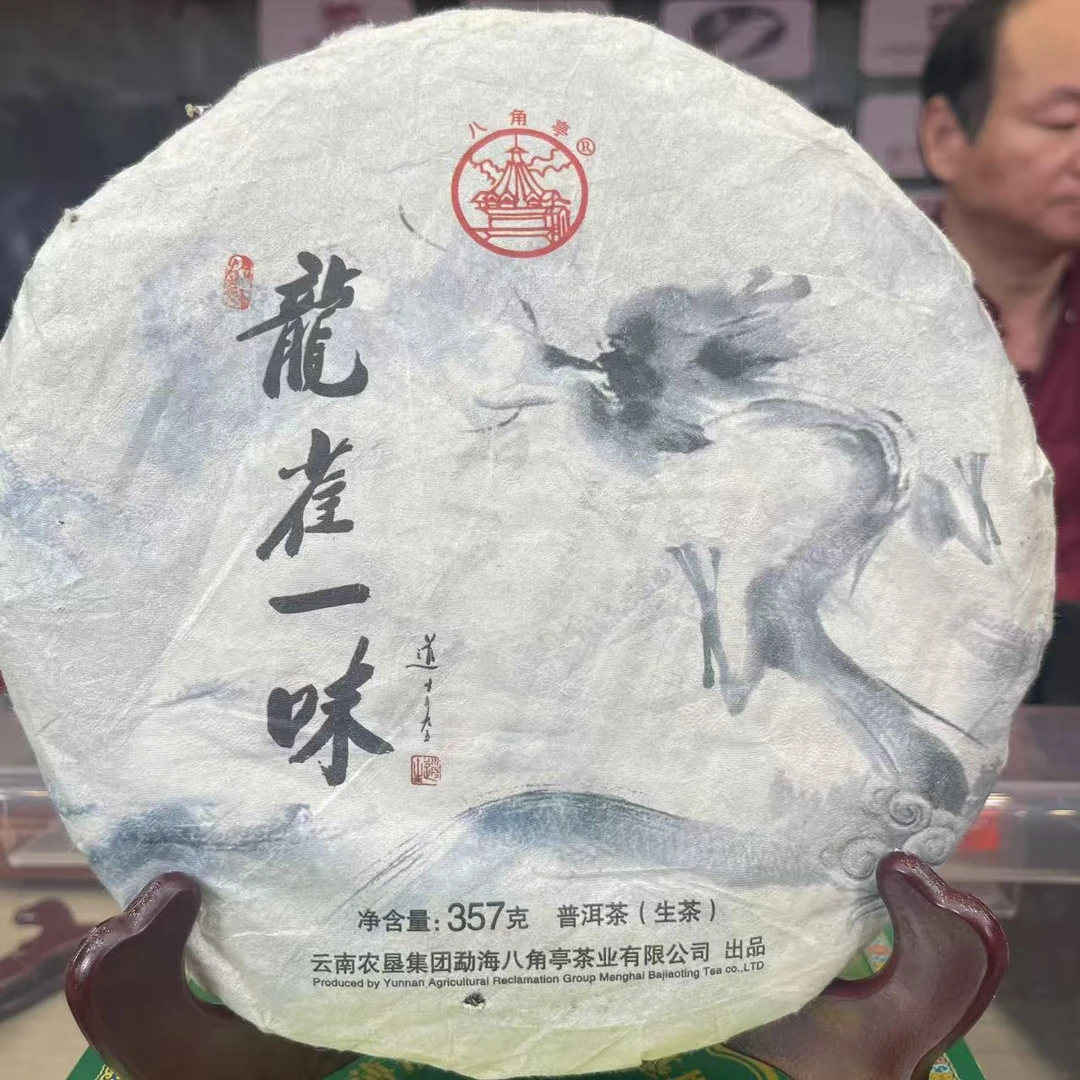 八角亭®
龍雀一味
净含量：357克 普洱茶（生茶）
云南农垦集团勐海八角亭茶业有限公司 出品
Produced by Yunnan Agricultural Reclamation Group Menghai Bajiaoting Tea co.,LTD